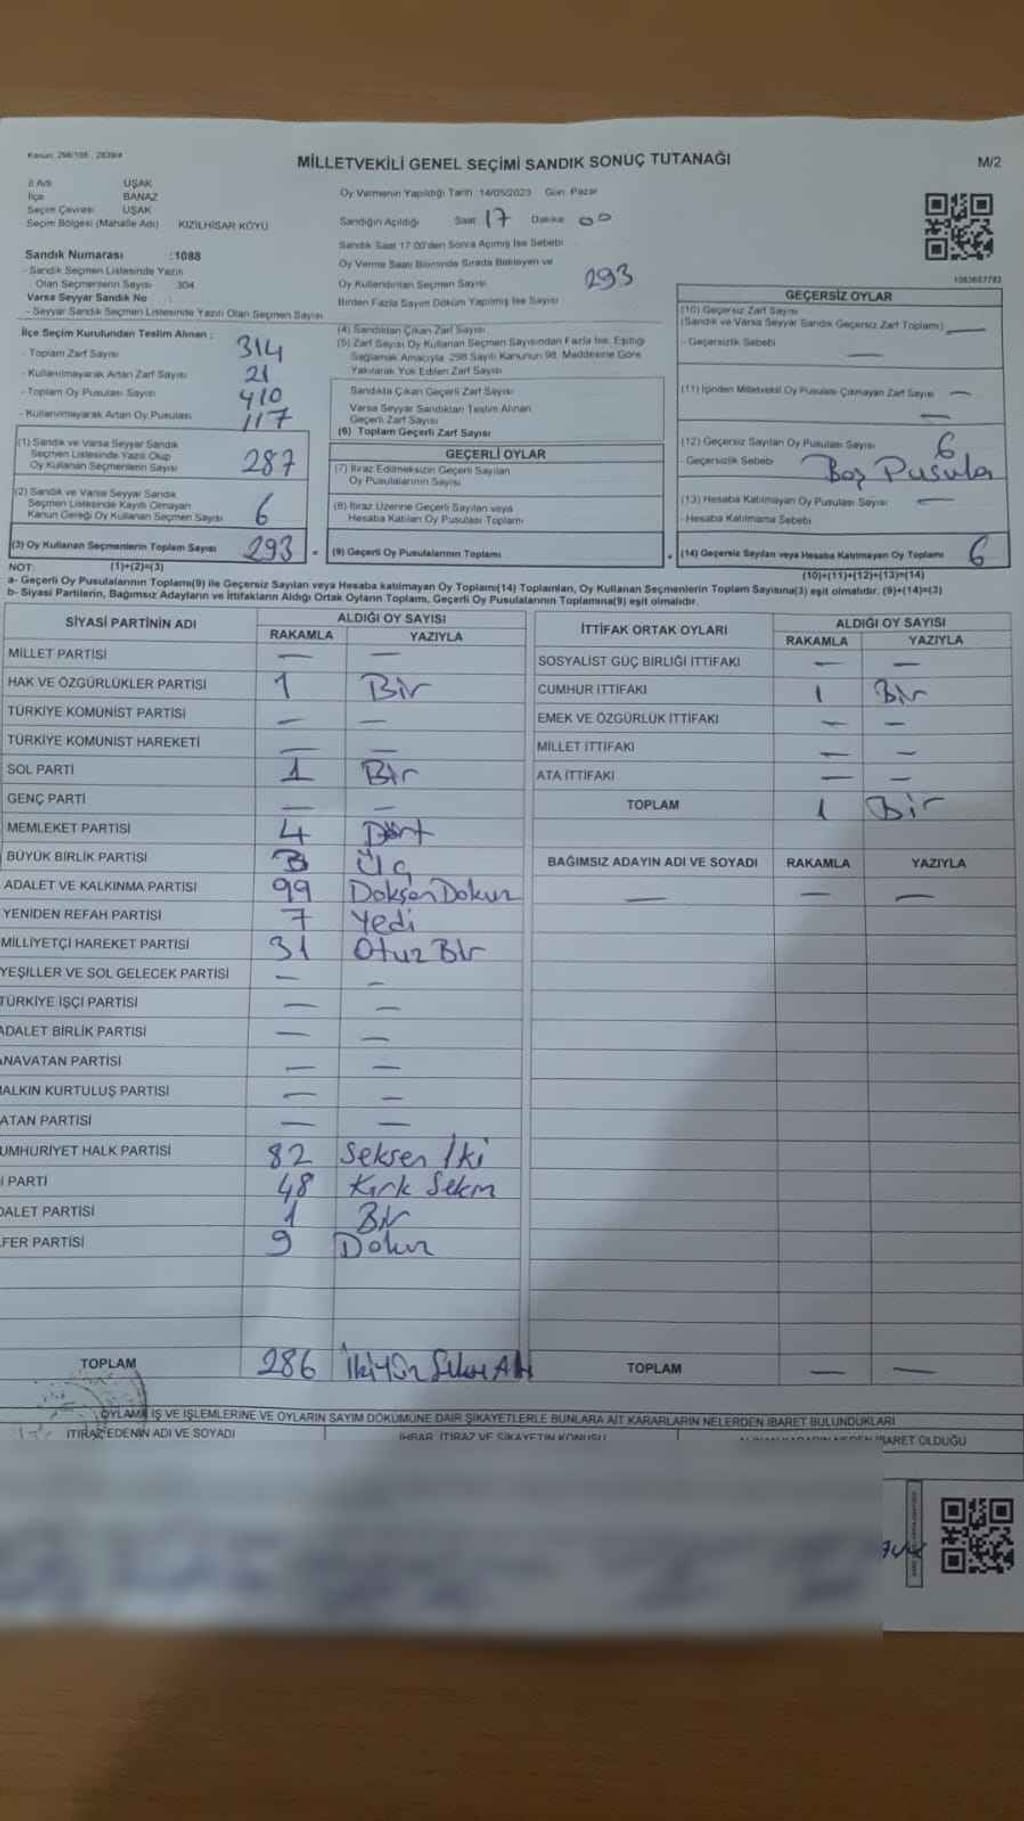 Kanun: 298/105 , 2839/4
MİLLETVEKİLİ GENEL SEÇİMİ SANDIK SONUÇ TUTANAĞI
M/2
İl Adı UŞAK
İlçe BANAZ
Seçim Çevresi UŞAK
Seçim Bölgesi (Mahalle Adı) KIZILHİSAR KÖYÜ
Oy Vermenin Yapıldığı Tarih: 14/05/2023 Gün: Pazar
Sandığın Açıldığı Saat 17 Dakika 00
Sandık Saat 17:00'den Sonra Açılmış İse Sebebi
Oy Verme Saati Bitiminde Sırada Bekleyen ve
Oy Kullandırılan Seçmen Sayısı 293
Birden Fazla Sayım Döküm Yapılmış İse Sayısı
Sandık Numarası :1088
- Sandık Seçmen Listesinde Yazılı
Olan Seçmenlerin Sayısı 304
Varsa Seyyar Sandık No :
- Seyyar Sandık Seçmen Listesinde Yazılı Olan Seçmen Sayısı
İlçe Seçim Kurulundan Teslim Alınan :
- Toplam Zarf Sayısı 314
- Kullanılmayarak Artan Zarf Sayısı 21
- Toplam Oy Pusulası Sayısı 410
- Kullanılmayarak Artan Oy Pusulası 117
(1) Sandık ve Varsa Seyyar Sandık
Seçmen Listesinde Yazılı Olup
Oy Kullanan Seçmenlerin Sayısı 287
(2) Sandık ve Varsa Seyyar Sandık
Seçmen Listesinde Kayıtlı Olmayan
Kanun Gereği Oy Kullanan Seçmen Sayısı 6
(3) Oy Kullanan Seçmenlerin Toplam Sayısı 293
(4) Sandıktan Çıkan Zarf Sayısı
(5) Zarf Sayısı Oy Kullanan Seçmen Sayısından Fazla İse, Eşitliği
Sağlamak Amacıyla 298 Sayılı Kanunun 98. Maddesine Göre
Yakılarak Yok Edilen Zarf Sayısı
Sandıkta Çıkan Geçerli Zarf Sayısı
Varsa Seyyar Sandıktan Teslim Alınan
Geçerli Zarf Sayısı
(6) Toplam Geçerli Zarf Sayısı
GEÇERLİ OYLAR
(7) İtiraz Edilmeksizin Geçerli Sayılan
Oy Pusulalarının Sayısı
(8) İtiraz Üzerine Geçerli Sayılan veya
Hesaba Katılan Oy Pusulası Toplamı
(9) Geçerli Oy Pusulalarının Toplamı
GEÇERSİZ OYLAR
(10) Geçersiz Zarf Sayısı
(Sandık ve Varsa Seyyar Sandık Geçersiz Zarf Toplamı) —
- Geçersizlik Sebebi —
(11) İçinden Milletvekili Oy Pusulası Çıkmayan Zarf Sayısı —
(12) Geçersiz Sayılan Oy Pusulası Sayısı 6
- Geçersizlik Sebebi Boş Pusula
(13) Hesaba Katılmayan Oy Pusulası Sayısı —
- Hesaba Katılmama Sebebi
(14) Geçersiz Sayılan veya Hesaba Katılmayan Oy Toplamı 6
NOT: (1)+(2)=(3) (10)+(11)+(12)+(13)=(14)
a- Geçerli Oy Pusulalarının Toplamı(9) ile Geçersiz Sayılan veya Hesaba katılmayan Oy Toplamı(14) Toplamları, Oy Kullanan Seçmenlerin Toplam Sayısına(3) eşit olmalıdır. (9)+(14)=(3)
b- Siyasi Partilerin, Bağımsız Adayların ve İttifakların Aldığı Ortak Oyların Toplamı, Geçerli Oy Pusulalarının Toplamına(9) eşit olmalıdır.
SİYASİ PARTİNİN ADI ALDIĞI OY SAYISI
RAKAMLA YAZIYLA
MİLLET PARTİSİ — —
HAK VE ÖZGÜRLÜKLER PARTİSİ 1 Bir
TÜRKİYE KOMÜNİST PARTİSİ — —
TÜRKİYE KOMÜNİST HAREKETİ — —
SOL PARTİ 1 Bir
GENÇ PARTİ — —
MEMLEKET PARTİSİ 4 Dört
BÜYÜK BİRLİK PARTİSİ 3 Üç
ADALET VE KALKINMA PARTİSİ 99 Doksan Dokuz
YENİDEN REFAH PARTİSİ 7 Yedi
MİLLİYETÇİ HAREKET PARTİSİ 31 Otuz Bir
YEŞİLLER VE SOL GELECEK PARTİSİ — —
TÜRKİYE İŞÇİ PARTİSİ — —
ADALET BİRLİK PARTİSİ — —
ANAVATAN PARTİSİ — —
HALKIN KURTULUŞ PARTİSİ — —
ATAN PARTİSİ — —
UMHURİYET HALK PARTİSİ 82 Seksen İki
İ PARTİ 48 Kırk Sekiz
DALET PARTİSİ 1 Bir
FER PARTİSİ 9 Dokuz
TOPLAM 286 İkiyüz Seksen Altı
İTTİFAK ORTAK OYLARI ALDIĞI OY SAYISI
RAKAMLA YAZIYLA
SOSYALİST GÜÇ BİRLİĞİ İTTİFAKI — —
CUMHUR İTTİFAKI 1 Bir
EMEK VE ÖZGÜRLÜK İTTİFAKI — —
MİLLET İTTİFAKI — —
ATA İTTİFAKI — —
TOPLAM 1 Bir
BAĞIMSIZ ADAYIN ADI VE SOYADI RAKAMLA YAZIYLA
— — —
TOPLAM — —
OYLAMA İŞ VE İŞLEMLERİNE VE OYLARIN SAYIM DÖKÜMÜNE DAİR ŞİKAYETLERLE BUNLARA AİT KARARLARIN NELERDEN İBARET BULUNDUKLARI
İTİRAZ EDENİN ADI VE SOYADI
İHBAR, İTİRAZ VE ŞİKAYETİN KONUSU
İBARET OLDUĞU